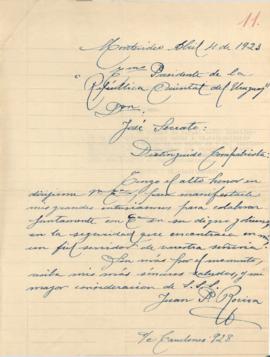 11.
Montevideo Abril 11 de 1923
Presidente de la
"República Oriental del Uruguay"
Don.
José Serrato:
Distinguido Compatriota:
Tengo el alto honor en
dirigirme para manifestarle
mis grandes intenciones para colaborar
juntamente con en su digno gobierno
en la seguridad que encontrará en mi
un fiel servidor de nuestra
Sin más por el momento,
reciba mis más sinceros saludos, y mi
mayor consideración de S.S.S.
Juan
S/c Canelones 928